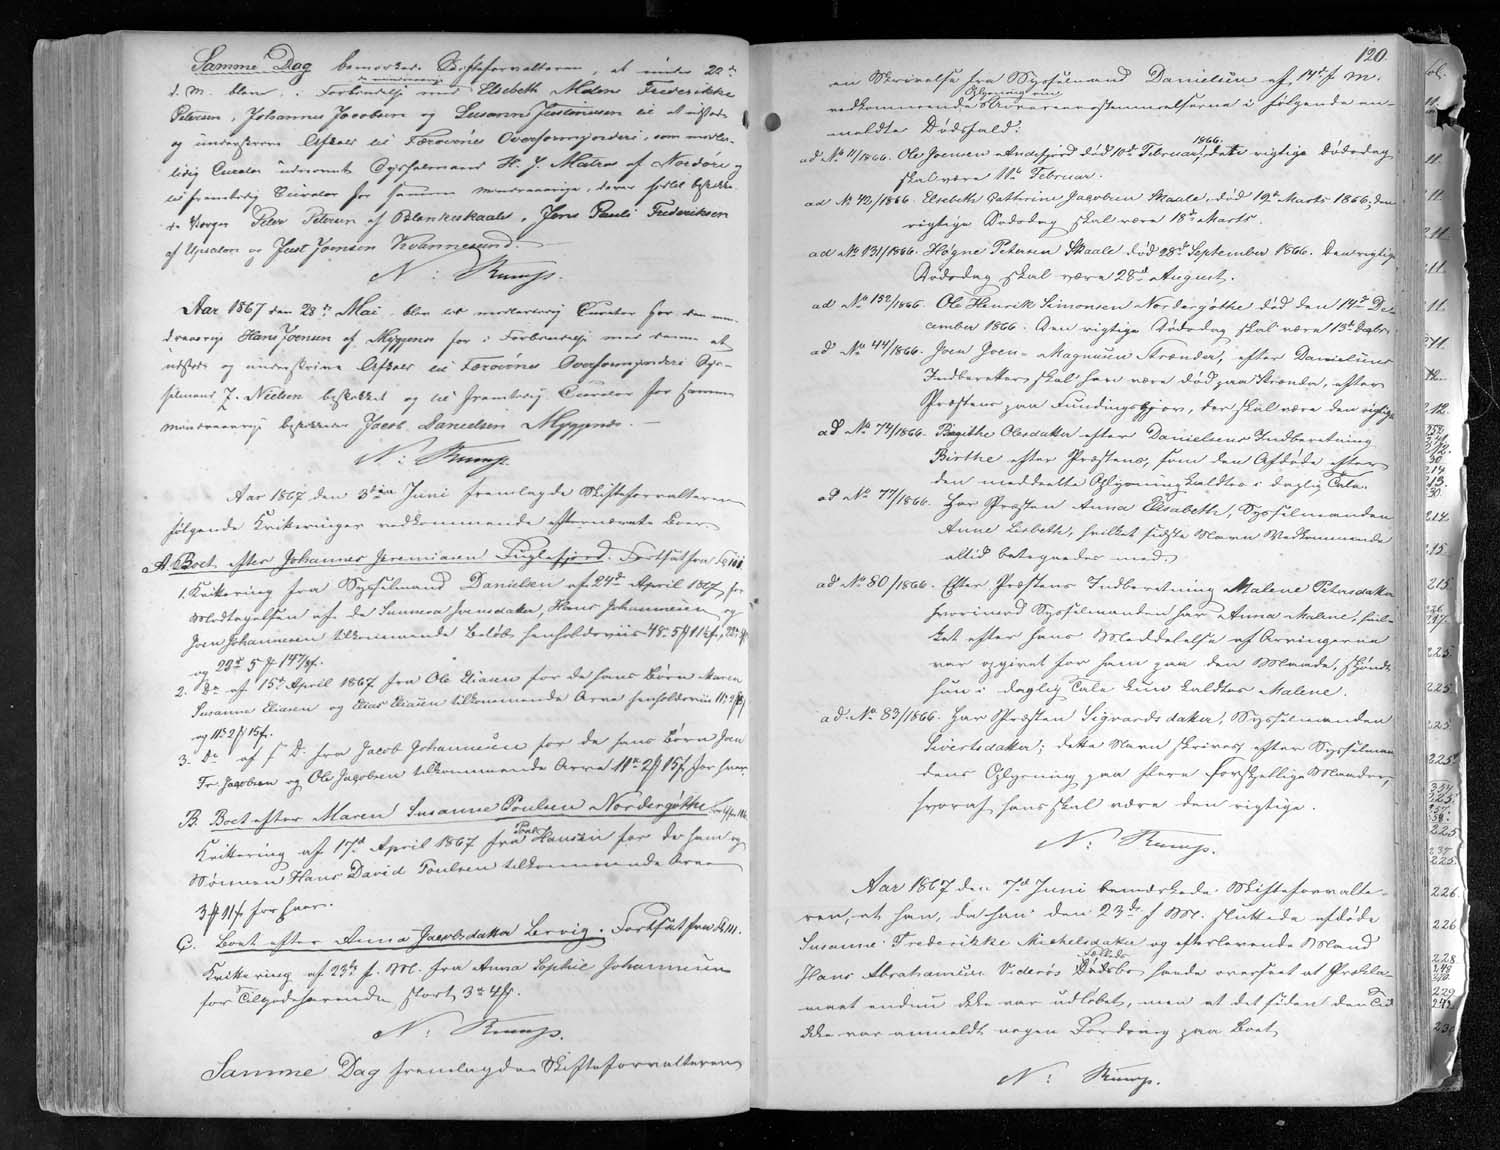 Samme Dag bemærkede Skifteforvalteren, at under 22de
d. M. blev i Forbindelse med Elsebeth Malen Frederikke
de mindreaarige
Petersen, Johannes Jacobsen og Susanne Justinussen til at udstede
og underskrive Afkald til Færøernes Overformynderi, som midler-
tidig Curator udnævnt Sysselmand H. J. Matras af Nordøre og
til fremtidig Curator for samme mindreaarige, deres hidtil beskikke-
de Værger Peter Petersen af Blankeskaale, Jens Pauli Frederiksen
af Upsalen og Just Joensen Kvannesund.
N: Rump.
Aar 1867 den 28de Mai blev til midlertidig Curator for den min-
dreaarige Hans Joensen af Myggenæs for i Forbindelse med denne at
udstede og underskrive Afkald til Færøernes Overformynderi Sys-
selmand J. Nielsen beskikket og til fremtidig Curator for samme
mindreaarige beskikkes Jacob Danielsen Myggenæs.
N: Rump.
Aar 1867 den 3die Juni fremlagde Skifteforvalteren
følgende Kvitteringer vedkommende efternævnte Boer
A. Boet efter Johannes Jeremiasen Fuglefjord. Fortsat fra Fol 101
1. Kvittering fra Sysselmand Danielsen af 24de April 1867 for
Modtagelsen af de Sunneva Joensdatter, Hans Johannesen og
Joen Johannesen tilkommende Beløb henholdsviis 48rd 5ß 11½f, 22rd
og 22rd 5ß 14⅞f.
2. Do af 15de April 1867 fra Ole Eliasen for de hans Børn Maren
Susanne Eliasen og Elias Eliasen tilkommende Arv henholdsviis 11rd 2ß
og 11rd 2ß 15f.
3. Do af s. D. fra Jacob Johannesen for de hans Børn Joen
Fr. Jacobsen og Ole Jacobsen tilkommende Arv 11rd 2ß 15f for hver.
B. Boet efter Maren Susanne Poulsen Nordregøthe
Kvittering af 17de April 1867 fra Poul Hansen for de ham og
Sønnen Hans David Poulsen tilkommende Arv
3ß 11f for hver.
C. Boet efter Anna Jacobsdatter Lervig. Fortsat fra Fol 111.
Kvittering af 23de f. M. fra Anna Sophie Johannesen
for Tilgodehavende stort 3rd 4ß.
N: Rump.
Samme Dag fremlagde Skifteforvalteren
120.
en Skrivelse fra Sysselmand Danielsen af 14de f. M.
Oplysning om
vedkommende Uoverensstemmelserne i følgende an-
meldte Dødsfald:
ad No 11/1866. Ole Joensen Andefjord død 10de Februar 1866, dets rigtige Dødsdag
skal være 11te Februar.
ad No 42/1866. Elsebeth Cathrine Jacobsen Skaale, død 19de Marts 1866, den
rigtige Dødsdag skal være 18de Marts.
ad No 131/1866. Høgne Petersen Skaale død 28de September 1866. Den rigtige
Dødsdag skal være 28de August.
ad No 152/1866. Ole Henrik Simonsen Nordregøthe død den 14de De-
cember 1866. Den rigtige Dødsdag skal være 13de Decbr.
ad No 44/1866. Joen Joen-Magnusen Strænder, efter Danielsens
Indberetter skal han være død paa Strænder, efter
Præstens paa Fundingsbjørn, der skal være den rigtige.
ad No 74/1866. Birgithe Olesdatter efter Danielsens Indberetning
Birthe efter Præstens, som den Afdøde efter
den meddeelte Oplysning kaldtes i daglig Tale.
ad No 77/1866. Har Præsten Anna Elisabeth, Sysselmanden
Anne Lisbeth, hvilket sidste Navn Vedkommende
altid betegnedes med.
ad No 80/1866. Efter Præstens Indberetning Malene Petersdatter
hvorimod Sysselmanden har Anna Malene, hvil-
ket efter hans Meddelelse af Arvingerne
var opgivet for ham paa den Maade, skjøndt
hun i daglig Tale kun kaldtes Malene.
ad. No 83/1866. Har Præsten Sigvards datter, Sysselmanden
Sivertsdatter; dette Navn skrives efter Sysselman-
dens Oplysning paa flere forskjellige Maader,
hvoraf hans skal være den rigtige.
N: Rump.
Aar 1867 den 7de Juni bemærkede Skifteforvalte-
ren, at han, da han den 23de f. M. sluttede afdøde
Susanne Frederikke Michelsdatter og efterlevende Mand
Fælleds
Hans Abrahamsen Viderøs Dødsbo havde overseet at Prokla-
maet endnu ikke var udløbet, men at det siden den Tid
ikke var anmeldt nogen Fordring paa Boet.
N: Rump.